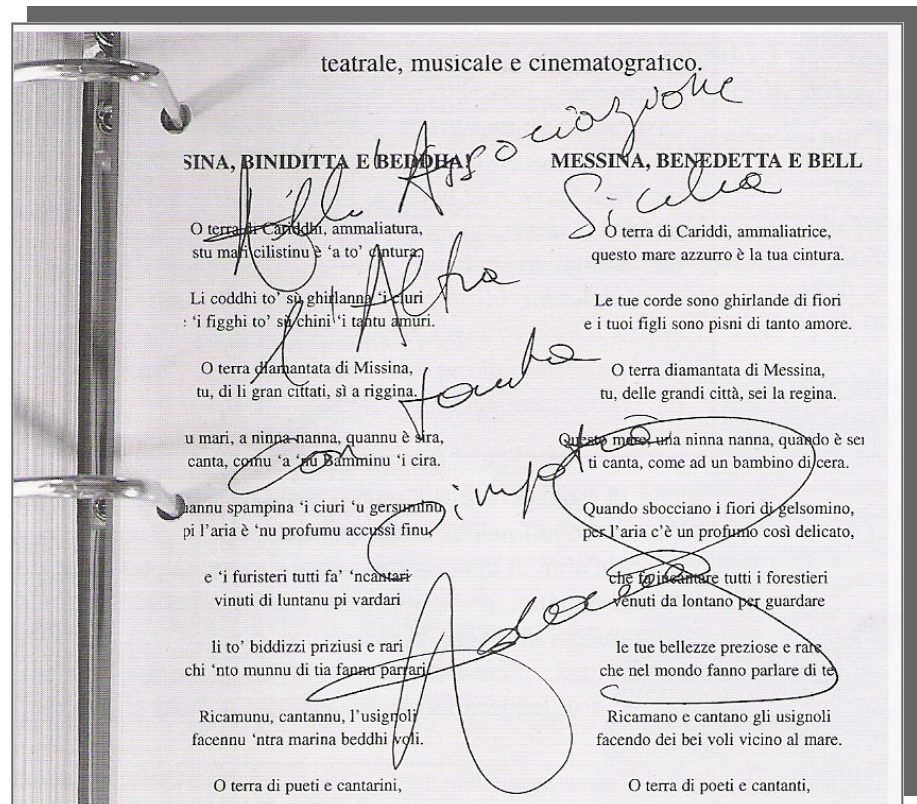 teatrale, musicale e cinematografico.
SINA, BINIDITTA E BEDDHA!
O terra di Cariddhi, ammaliatura,
stu mari cilistinu è ‘a to’ cintura.
Li coddhi to’ sù ghirlanna ‘i ciuri
‘i figghi to’ sù chini ‘i tantu amuri.
O terra diamantata di Missina,
tu, di li gran cittati, sì a riggina.
u mari, a ninna nanna, quannu è sira,
canta, comu ‘a ‘nu Bamminu ‘i cira.
annu spampina ‘i ciuri ‘u gersuminu,
pi l’aria è ‘nu profumu accussì finu,
e ‘i furisteri tutti fa’ ‘ncantari
vinuti di luntanu pi vardari
li to’ biddizzi priziusi e rari
chi ‘nto munnu di tia fannu parrari.
Ricamunu, cantannu, l’usignoli
facennu ‘ntra marina beddhi voli.
O terra di pueti e cantarini,
MESSINA, BENEDETTA E BELL
O terra di Cariddi, ammaliatrice,
questo mare azzurro è la tua cintura.
Le tue corde sono ghirlande di fiori
e i tuoi figli sono pisni di tanto amore.
O terra diamantata di Messina,
tu, delle grandi città, sei la regina.
Questo mare, una ninna nanna, quando è ser
ti canta, come ad un bambino di cera.
Quando sbocciano i fiori di gelsomino,
per l’aria c’è un profumo così delicato,
che fa incantare tutti i forestieri
venuti da lontano per guardare
le tue bellezze preziose e rare
che nel mondo fanno parlare di te
Ricamano e cantano gli usignoli
facendo dei bei voli vicino al mare.
O terra di poeti e cantanti,
Associazione
Sicilia
l'Altra
con
simpatia